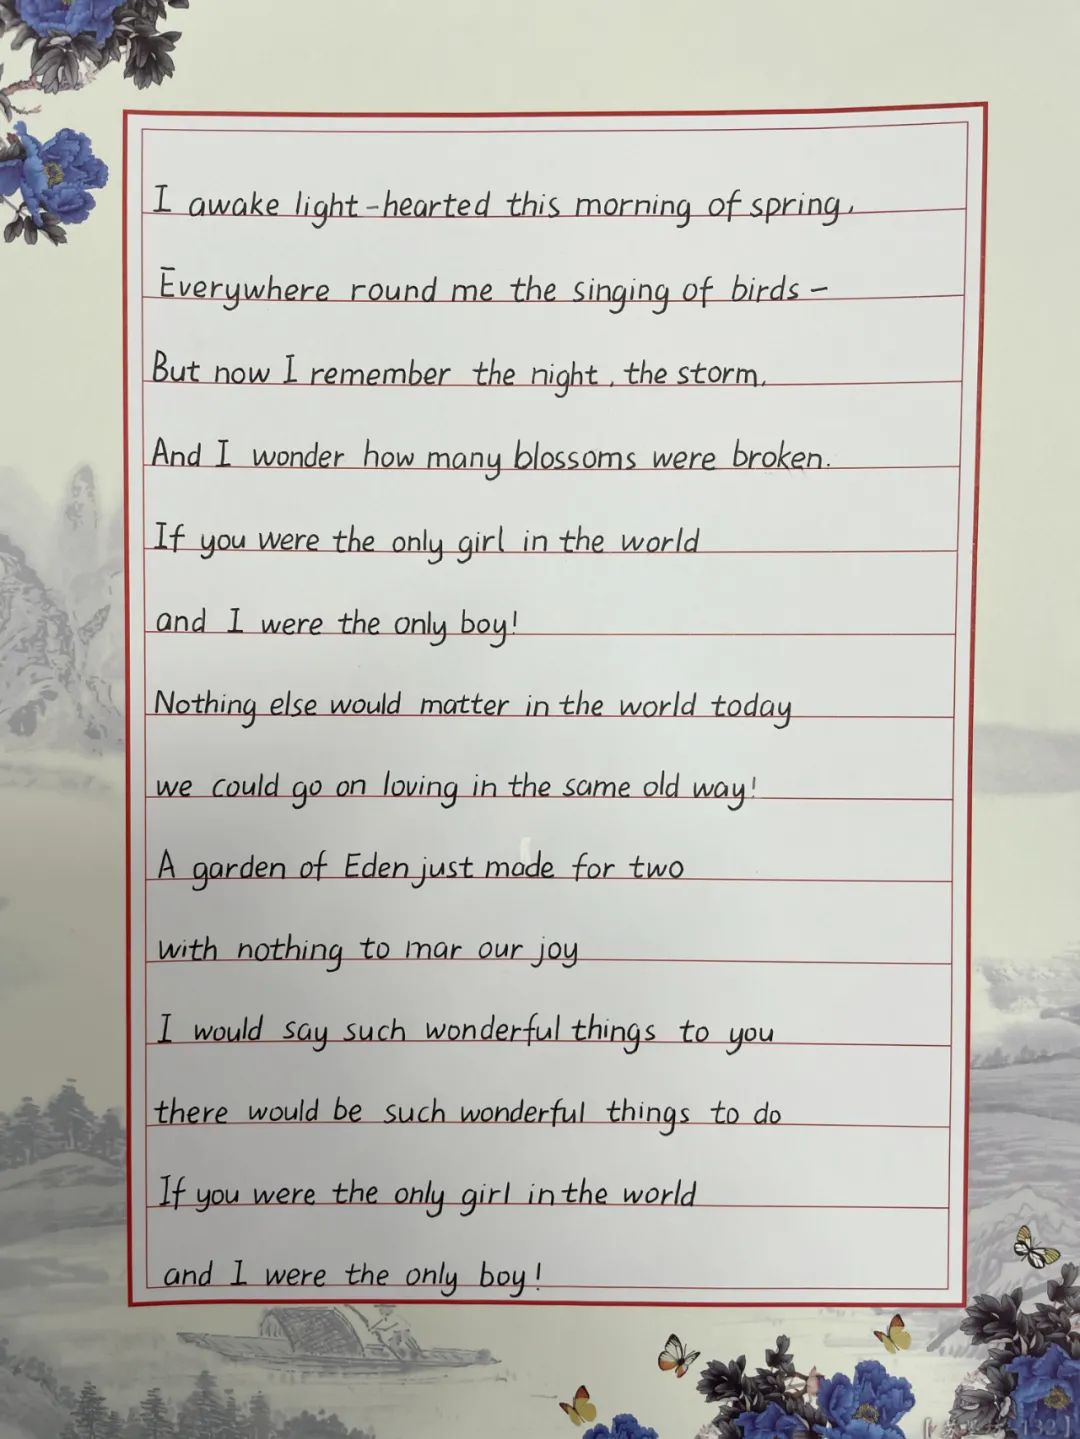 I awake light-hearted this morning of spring,
Everywhere round me the singing of birds -
But now I remember the night, the storm,
And I wonder how many blossoms were broken.
If you were the only girl in the world
and I were the only boy!
Nothing else would matter in the world today
we could go on loving in the same old way!
A garden of Eden just made for two
with nothing to mar our joy
I would say such wonderful things to you
there would be such wonderful things to do
If you were the only girl in the world
and I were the only boy!